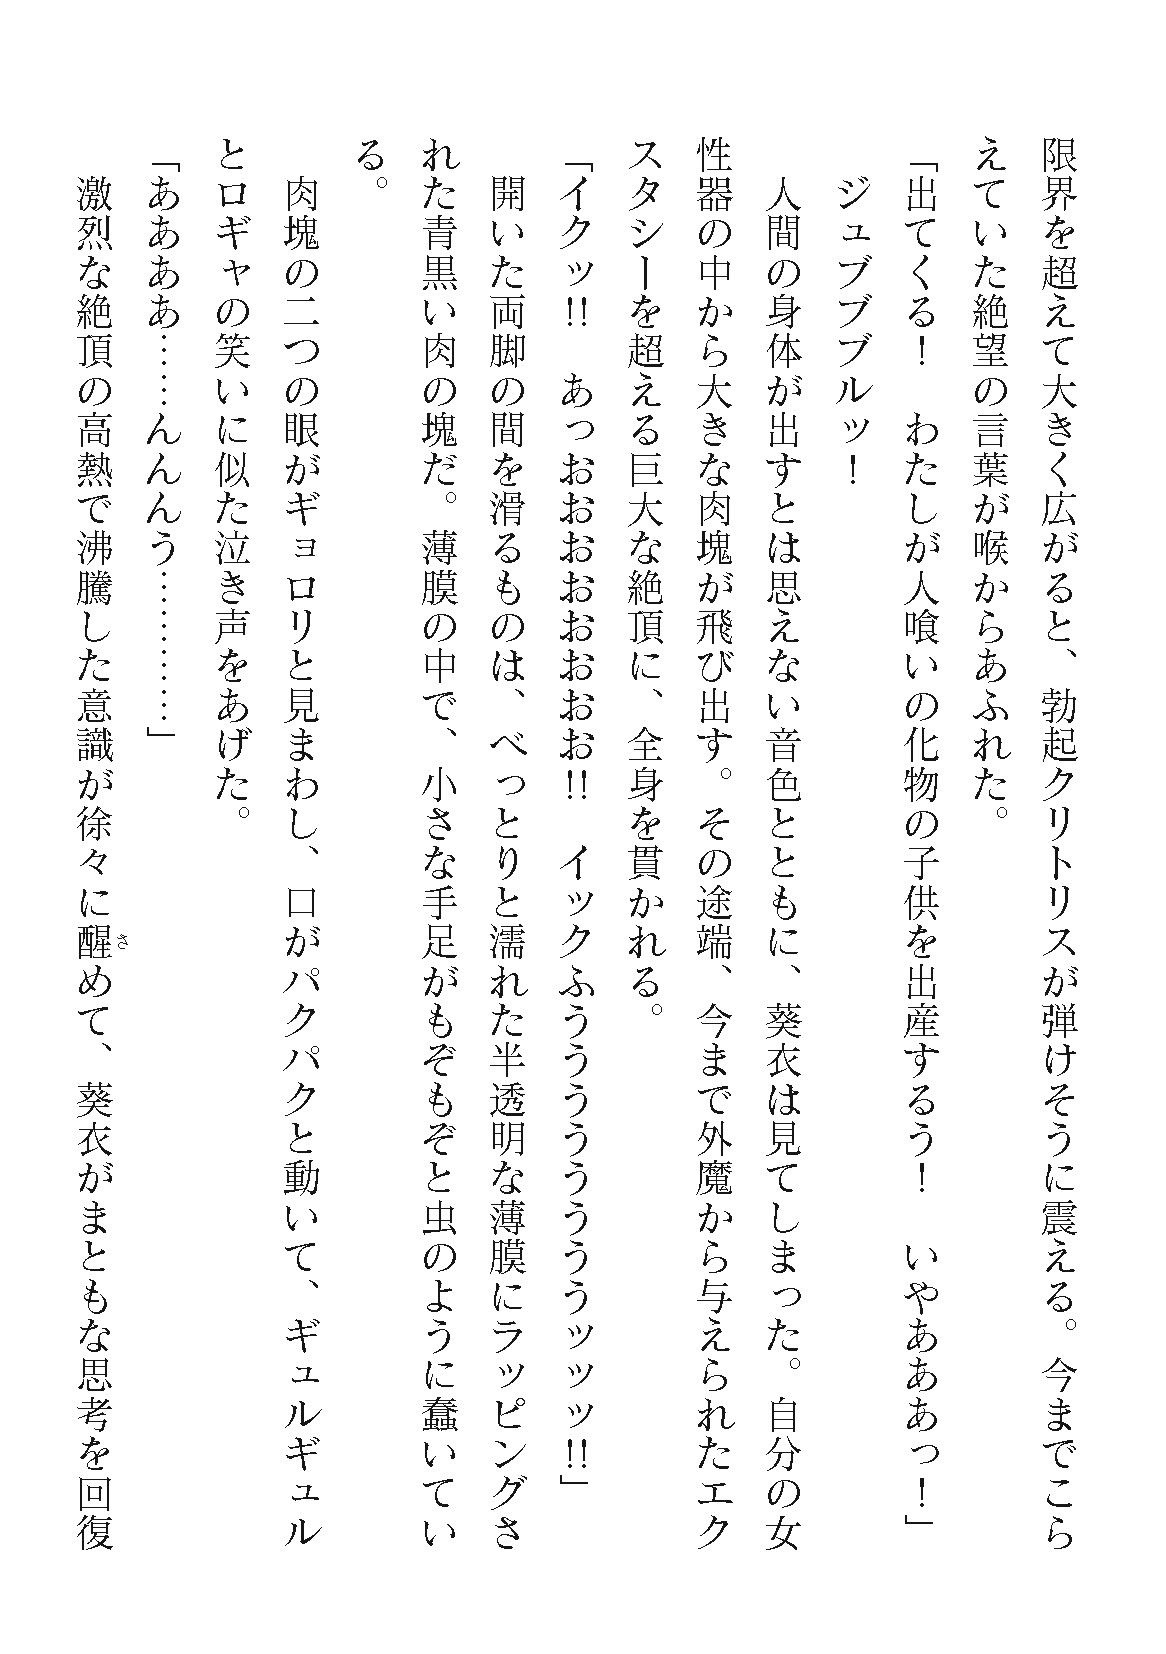 限界を超えて大きく広がると、勃起クリトリスが弾けそうに震える。今までこら
えていた絶望の言葉が喉からあふれた。
「出てくる！　わたしが人喰いの化物の子供を出産するう！　いやあああっ！」
ジュブブブルッ！
人間の身体が出すとは思えない音色とともに、葵衣は見てしまった。自分の女
性器の中から大きな肉塊が飛び出す。その途端、今まで外魔から与えられたエク
スタシーを超える巨大な絶頂に、全身を貫かれる。
「イクッ!!　あっおおおおおおおお!!　イックふううううううううッッッ!!」
開いた両脚の間を滑るものは、べっとりと濡れた半透明な薄膜にラッピングさ
れた青黒い肉の塊だ。薄膜の中で、小さな手足がもぞもぞと虫のように蠢いてい
る。
肉塊の二つの眼がギョロリと見まわし、口がパクパクと動いて、ギュルギュル
とロギャの笑いに似た泣き声をあげた。
「ああああ……んんんう…………」
激烈な絶頂の高熱で沸騰した意識が徐々に醒さめて、葵衣がまともな思考を回復